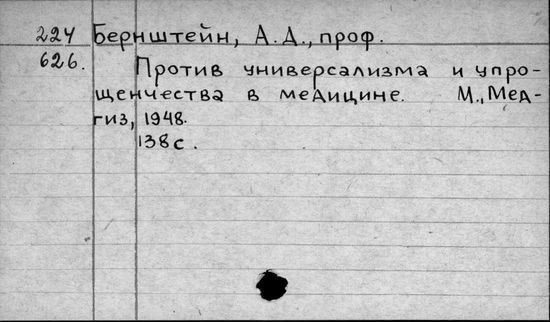 224 Бернштейн, А.Д., проф.
626. Против универсализма и упро-
щенчества в медицине. М., Мед-
гиз, 1948.
138 с.